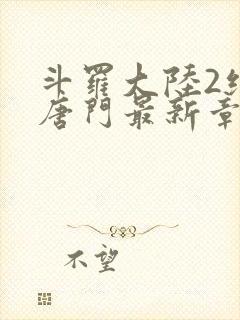 斗羅大陸2
唐門最新章
不望